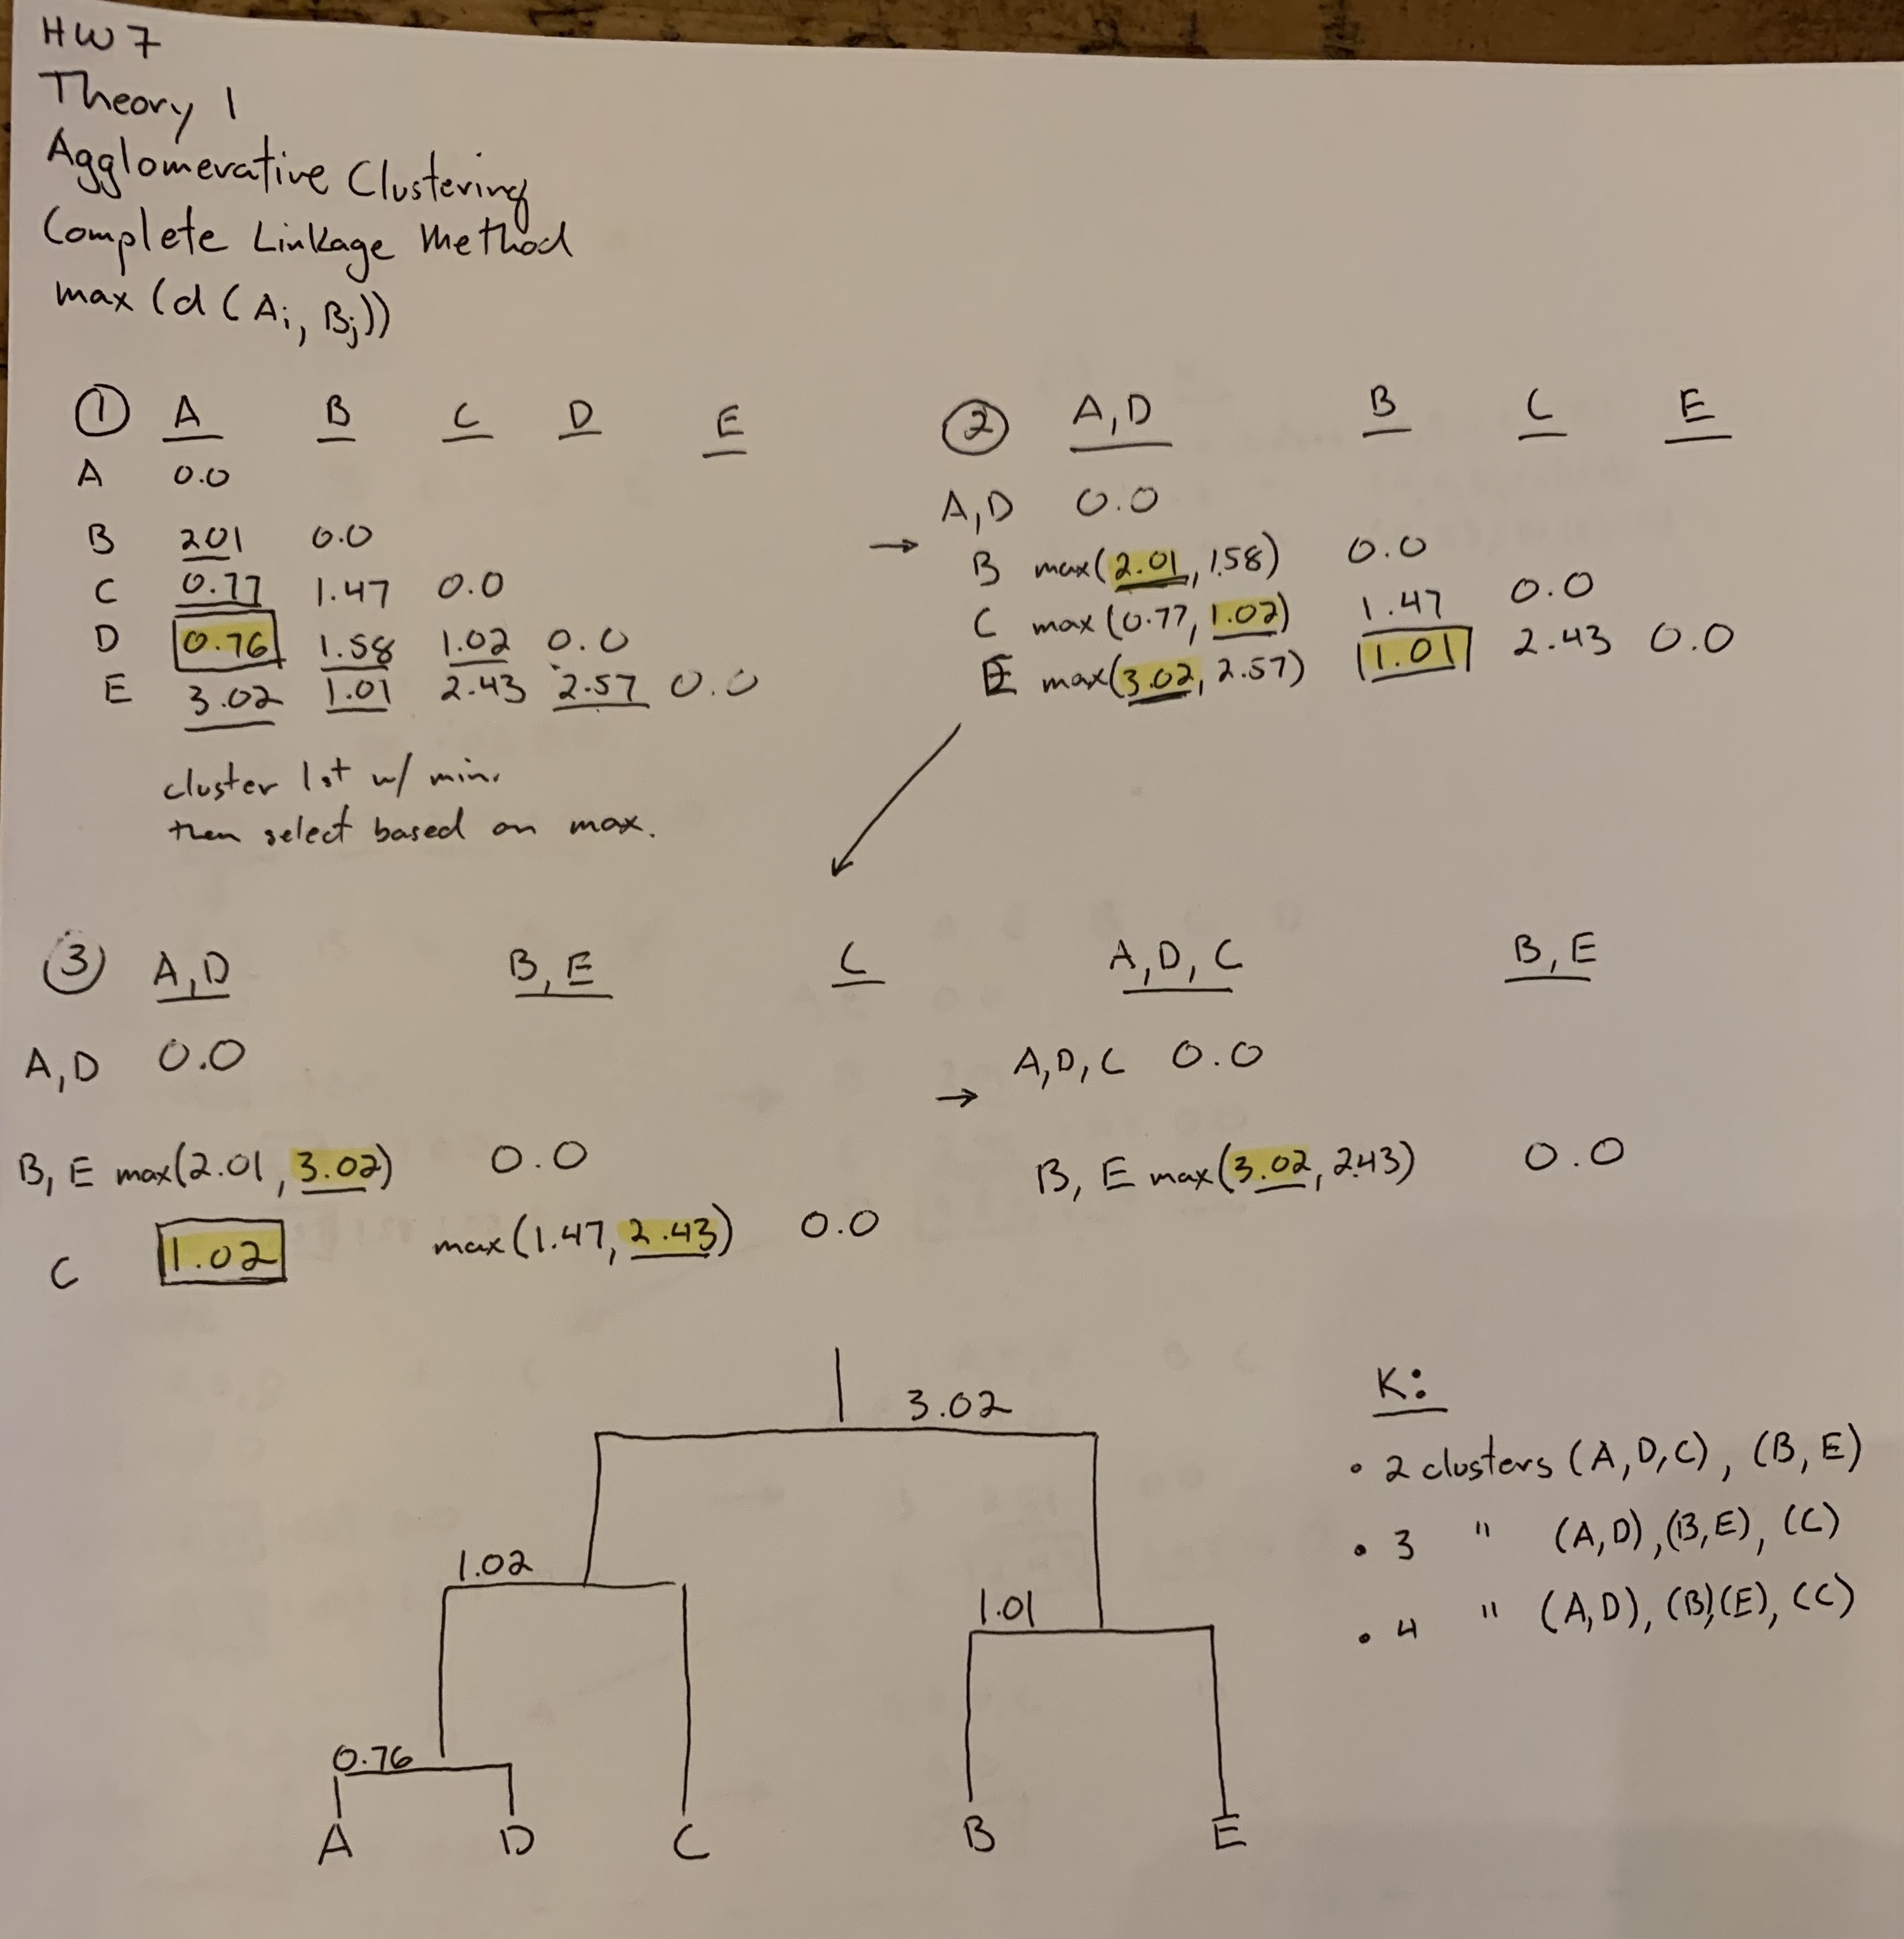 HW 7
Theory 1
Agglomerative Clustering
Complete Linkage Method
max (d ( Ai, Bj))
① A B C D E
A 0.0
B 201 0.0
C 0.77 1.47 0.0
D 0.76 1.58 1.02 0.0
E 3.02 1.01 2.43 2.57 0.0
cluster 1st w/ min.
then select based on max.
② A,D B C E
A,D 0.0
→ B max(2.01, 1.58) 0.0
C max (0.77, 1.02) 1.47 0.0
E max(3.02, 2.57) 1.01 2.43 0.0
③ A,D B,E C
A,D 0.0
B,E max(2.01, 3.02) 0.0
C 1.02 max(1.47, 2.43) 0.0
A,D,C B,E
→ A,D,C 0.0
B,E max(3.02, 2.43) 0.0
3.02
1.02
1.01
0.76
A D C B E
K:
• 2 clusters (A,D,C), (B,E)
• 3 " (A,D),(B,E),(C)
• 4 " (A,D),(B)(E),(C)